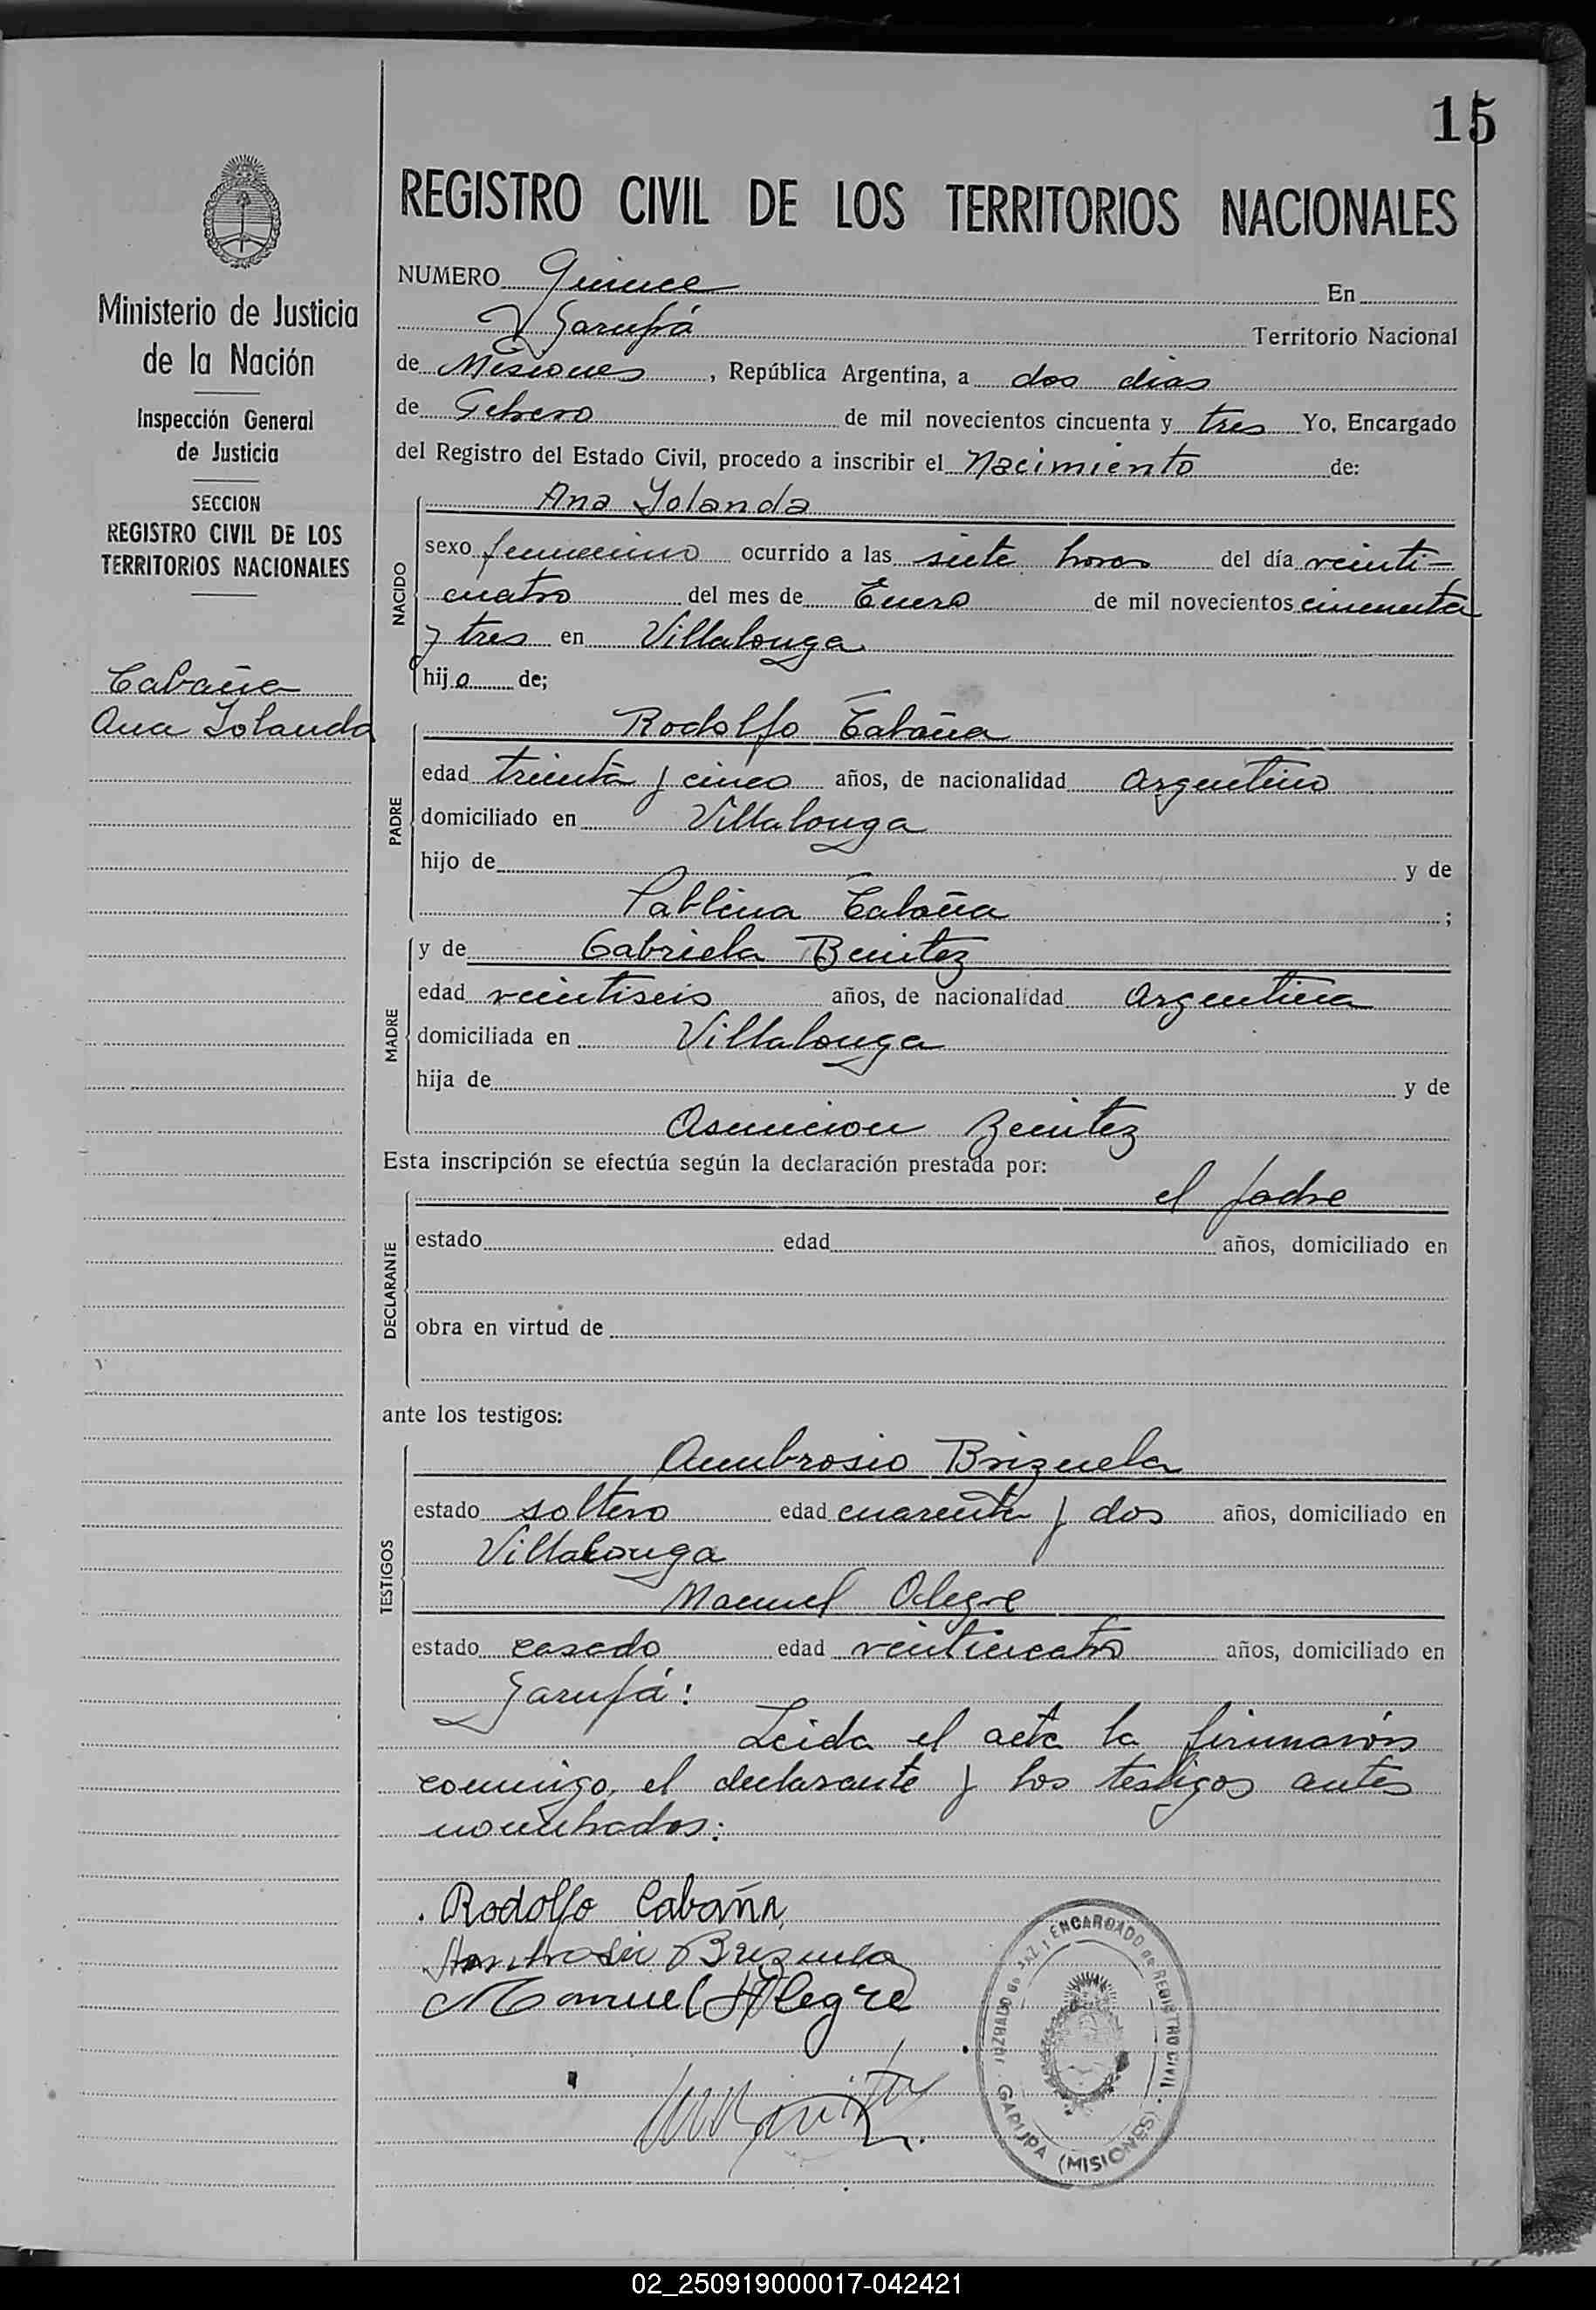 15
REGISTRO CIVIL DE LOS TERRITORIOS NACIONALES
Ministerio de Justicia
de la Nación
Inspección General
de Justicia
SECCION
REGISTRO CIVIL DE LOS
TERRITORIOS NACIONALES
Cabaña
Ana Iolanda
NUMERO Quince En
Garupá Territorio Nacional
de Misiones, República Argentina, a dos dias
de Febrero de mil novecientos cincuenta y tres Yo, Encargado
del Registro del Estado Civil, procedo a inscribir el Nacimiento de:
NACIDO
Ana Yolanda
sexo femenino ocurrido a las siete horas del día veinti-
cuatro del mes de Enero de mil novecientos cincuenta
y tres en Villalonga
hija de;
PADRE
Rodolfo Cabaña
edad treinta y cinco años, de nacionalidad Argentino
domiciliado en Villalonga
hijo de y de
Pablina Cabaña ;
MADRE
y de Gabriela Benitez
edad veintiseis años, de nacionalidad Argentina
domiciliada en Villalonga
hija de y de
Asuncion Benitez
Esta inscripción se efectúa según la declaración prestada por:
DECLARANTE
el padre
estado edad años, domiciliado en
obra en virtud de
ante los testigos:
TESTIGOS
Ambrosio Brizuela
estado soltero edad cuarenta y dos años, domiciliado en
Villalonga
Manuel Alegre
estado casado edad veinticuatro años, domiciliado en
Garupá:
Leida el acta la firmaron
conmigo, el declarante y los testigos antes
nombrados:
Rodolfo Cabaña,
Ambrosio Brizuela
Manuel Alegre
JUZGADO de PAZ y ENCARGADO de REGISTRO CIVIL
GARUPA (MISIONES)
02_250919000017-042421